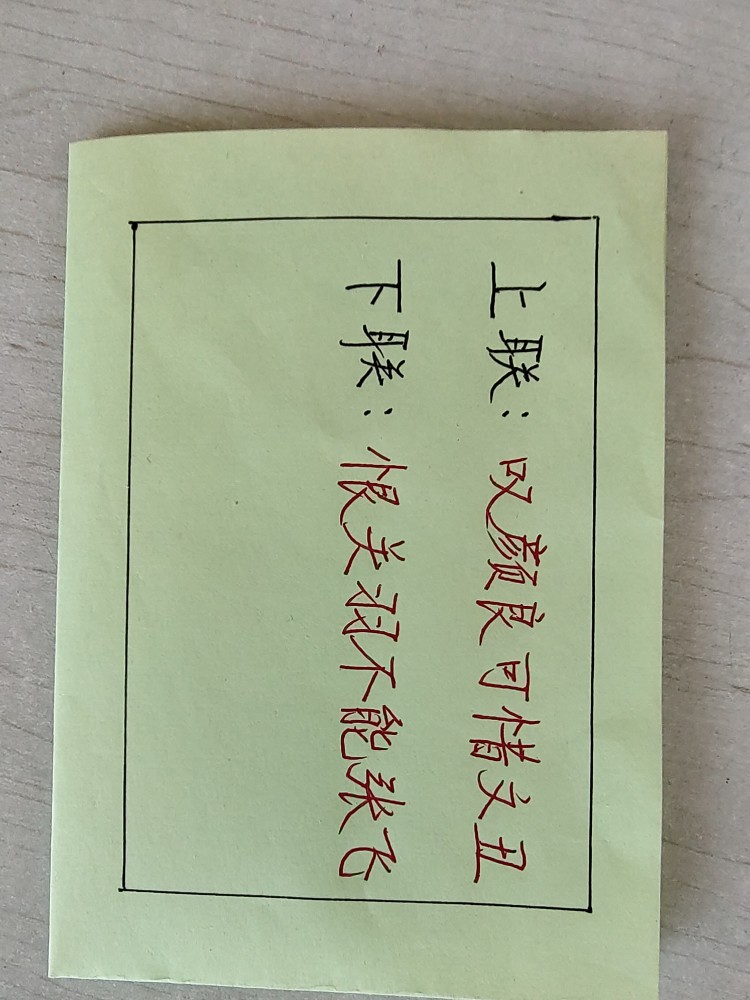 上联：叹颜良可惜文丑
下联：恨关羽不能张飞